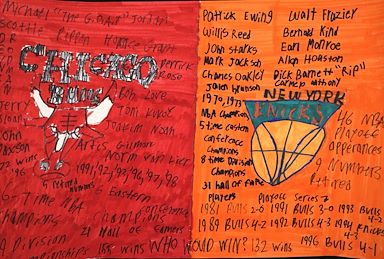 Michael "The G.O.A.T" Jordan
Scottie Pippen Horace Grant
Derrick
Rose
CHICAGO
BULLS
Bob Love
Toni Kukoc
Joakim Noah
Artis Gilmore
Norm Van Lier
72 wins
1991, 92, 93, 96, 97, 98
6 Time NBA
Champions
6 Eastern
Conference
Champions
21 Hall of Famers
Division
Championships 155 wins WHO WOULD WIN? 132 wins
Patrick Ewing Walt Frazier
Willis Reed Bernard Kind
John Starks Earl Monroe
Mark Jackson Allan Houston
Charles Oakley Dick Barnett "Rip"
Carmelo Anthony
Jalen Brunson
1970, 1973
NBA Champions
NEW YORK
KNICKS
5 time eastern
Conference
Champions
8 time Division
Champions
31 Hall of Fame
Players
46 NBA
Playoff
apperances
9 Numbers
Retired
Playoff Series
1981 Bulls 2-0 1991 Bulls 3-0 1993 Bulls 4-2
1989 Bulls 4-2 1992 Bulls 4-3 1994 Knicks 4-3
1996 Bulls 4-1